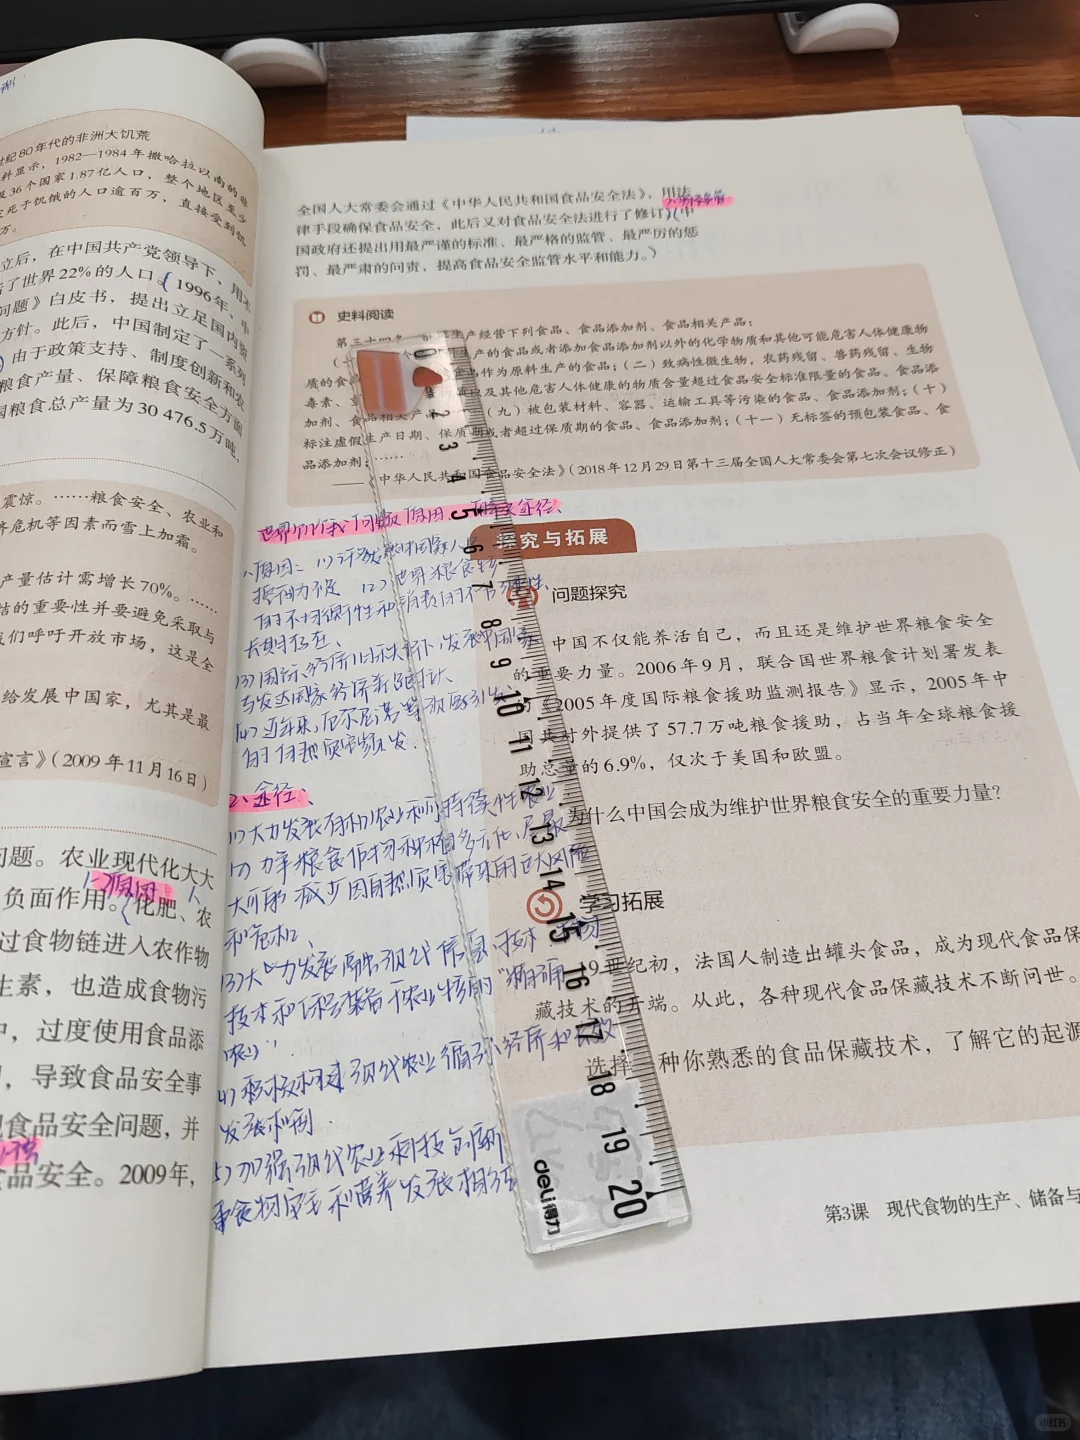 纪80年代的非洲大饥荒
料显示，1982—1984年撒哈拉以南的非
36个国家1.87亿人口，整个地区至少
死于饥饿的人口逾百万，直接受到饥
万。
立后，在中国共产党领导下，用不
了世界22%的人口。(1996年，中
问题》白皮书，提出立足国内资
方针。此后，中国制定了一系列
由于政策支持、制度创新和农
粮食产量、保障粮食安全方面
国粮食总产量为30 476.5万吨，
震惊。……粮食安全、农业和
济危机等因素而雪上加霜。
产量估计需增长70%。……
结的重要性并要避免采取与
我们呼吁开放市场，这是全
给发展中国家，尤其是最
宣言》(2009年11月16日)
问题。农业现代化大大
1、原因
负面作用。(化肥、农
过食物链进入农作物
生素，也造成食物污
中，过度使用食品添
，导致食品安全事
食品安全问题，并
食品安全。2009年，
全国人大常委会通过《中华人民共和国食品安全法》，用法
律手段确保食品安全，此后又对食品安全法进行了修订)(中
国政府还提出用最严谨的标准、最严格的监管、最严厉的惩
罚、最严肃的问责，提高食品安全监管水平和能力。)
史料阅读
生产经营下列食品、食品添加剂、食品相关产品：
产的食品或者添加食品添加剂以外的化学物质和其他可能危害人体健康物
质的食 作为原料生产的食品；(二) 致病性微生物，农药残留、兽药残留、生物
毒素、 以及其他危害人体健康的物质含量超过食品安全标准限量的食品、食品添
加剂、食品相关产品 (九) 被包装材料、容器、运输工具等污染的食品、食品添加剂；(十)
标注虚假生产日期、保质期或者超过保质期的食品、食品添加剂；(十一) 无标签的预包装食品、食
品添加剂；……
——《中华人民共和国食品安全法》(2018年12月29日第十三届全国人大常委会第七次会议修正)
世界 问题 原因、 途径、
1、原因：(1) 许多发展中国家人
(2) 世界粮食生
的不均衡性和消费的不
长期存在、
(3) 国际经济 下，发展中国家
与发达国家经济差距
(4) 近年来，厄尔尼诺等
的自然灾害频发．
2、途径：
(1) 大力发展有机农业和可持续性农业
(2) 力争粮食作物种植多元化，尽最
大可能减少因自然灾害带来的巨大风险
和危机、
(3) 大力发展 现代信息技术
技术和 装备于农业 的“精确
农业”．
(4) 积极构建现代农业循环经济和
发展机制．
(5) 加强现代农业科技创新
食物 和营养发展相结
探究与拓展
问题探究
中国不仅能养活自己，而且还是维护世界粮食安全
的重要力量。2006年9月，联合国世界粮食计划署发表
《2005年度国际粮食援助监测报告》显示，2005年中
国共对外提供了57.7万吨粮食援助，占当年全球粮食援
助总量的6.9%，仅次于美国和欧盟。
为什么中国会成为维护世界粮食安全的重要力量？
学习拓展
19世纪初，法国人制造出罐头食品，成为现代食品保
藏技术的开端。从此，各种现代食品保藏技术不断问世。
选择一种你熟悉的食品保藏技术，了解它的起源
第3课 现代食物的生产、储备与
0
2
3
4
5
6
7
8
9
10
11
12
13
14
15
16
17
18
19
20
deli得力
小红书